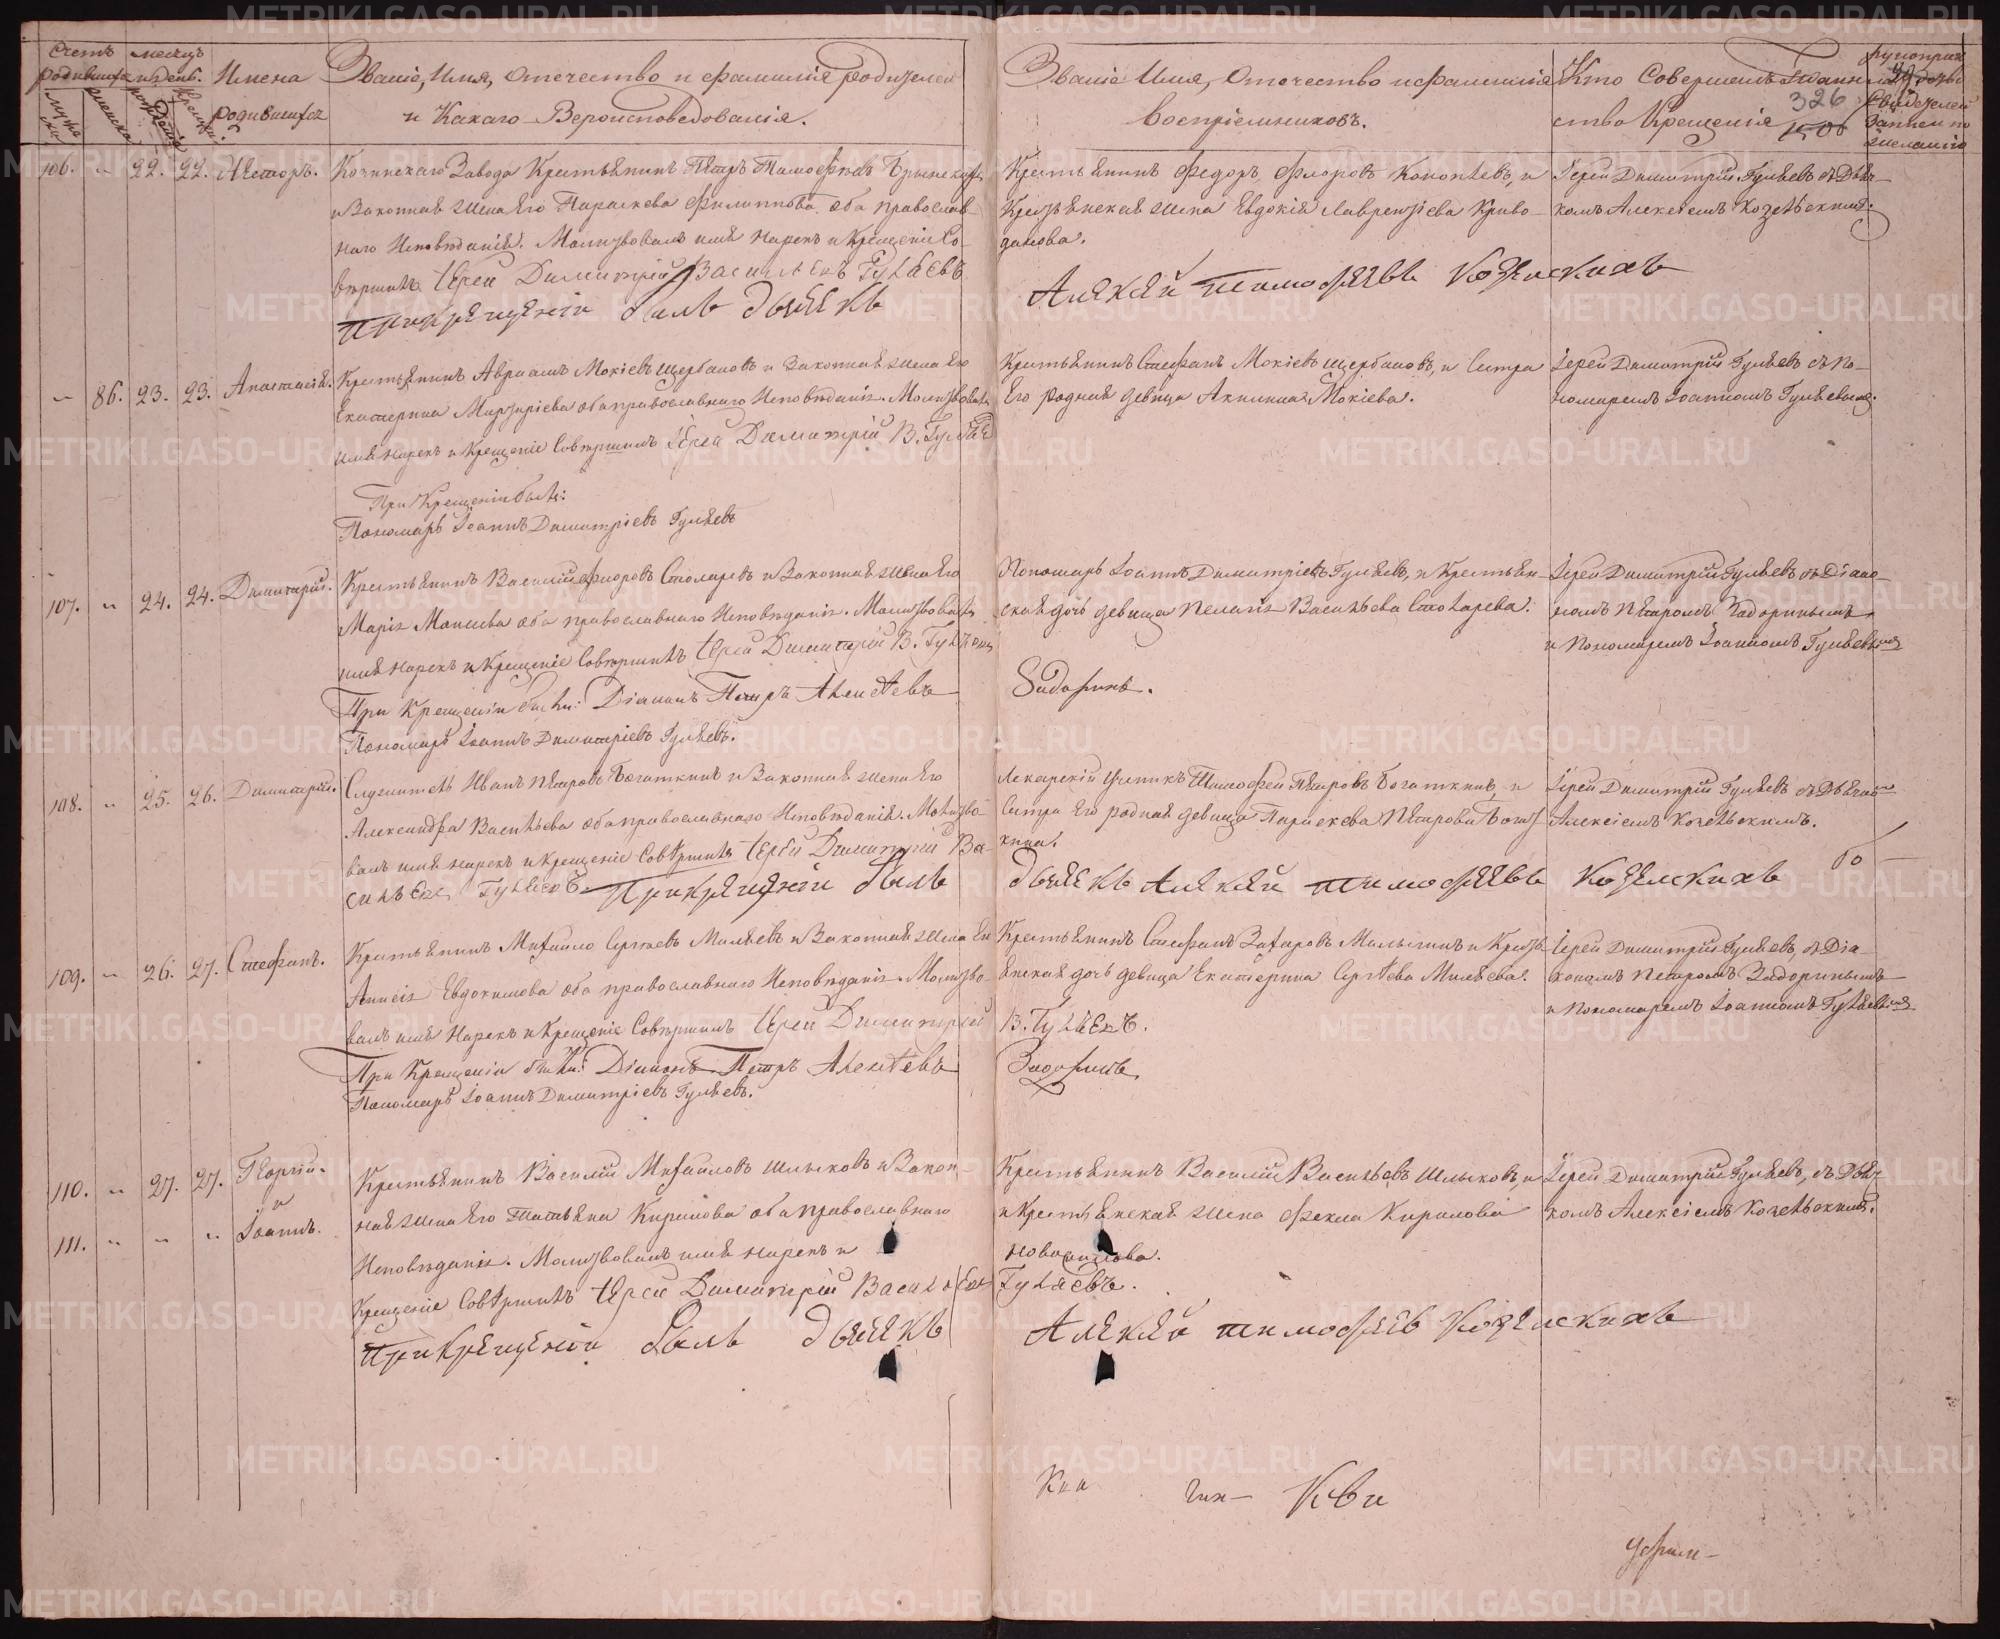 Счетъ родившихся
мужеска
женска
месяцъ и день
рожденія
крещенія
Имена родившихся
Званіе, Имя, Отечество и фамилія родителей
и Какаго Вероисповедованія.
Званіе Имя, Отечество и фамилія
Воспріемниковъ.
Кто Совершалъ Таин
ство Крещенія
326
свидетелей
записи по
желанію
106. 22. 22. Несторъ.
Крестьянинъ Петръ Тимофеевъ
и Законная жена Его Параскева Филиппова оба православ-
наго Исповѣданія. Молитвовалъ имя нарекъ и Крещеніе Со-
вершилъ Іерей Димитрій Васильевъ Гуляевъ
При крещеніи былъ дьячекъ
Крестьянинъ Федоръ Флоровъ Коноплевъ, и
Крестьянская жена Евдокія Лаврентіева Криво-
данова.
Алексей Тимофеевъ Козельскихъ
Іерей Димитрій Гуляевъ съ Дьяч-
комъ Алексіемъ Козельскимъ.
86. 23. 23. Анастасія.
Крестьянинъ Авраамъ Мокіевъ Щербаковъ и Законная жена Его
Екатерина оба православнаго Исповѣданія. Молитвовалъ
имя нарекъ и Крещеніе Совершилъ Іерей Димитрій В. Гуляевъ
При Крещеніи былъ:
Пономарь Іоаннъ Димитріевъ Гуляевъ
Крестьянинъ Стефанъ Мокіевъ Щербаковъ, и Сестра
Его родная девица Акилина Мокіева.
Іерей Димитрій Гуляевъ съ По-
номаремъ Іоанномъ Гуляевымъ.
107. 24. 24. Димитрій.
Крестьянинъ Василій Федоровъ Столяревъ и Законная жена Его
Марія оба православнаго Исповѣданія. Молитвовалъ
имя нарекъ и Крещеніе Совершилъ Іерей Димитрій В. Гуляевъ
При Крещеніи были: Діаконъ Петръ Алексѣевъ
Пономарь Іоаннъ Димитріевъ Гуляевъ.
Пономарь Іоаннъ Димитріевъ Гуляевъ, и Крестьян-
ская дочь девица Пелагія Васильева Столярева.
Задоринъ.
Іерей Димитрій Гуляевъ съ Діако-
номъ Петромъ Задоринымъ
и Пономаремъ Іоанномъ Гуляевымъ
108. 25. 26. Димитрій.
Служитель Иванъ Петровъ Богаткинъ и Законная жена Его
Александра Васильева оба православнаго Исповѣданія. Молитво-
валъ имя нарекъ и Крещеніе Совершилъ Іерей Димитрій Ва-
сильевъ Гуляевъ. При крещеніи былъ
Лекарскій ученикъ Тимофей Петровъ Богаткинъ, и
Сестра Его родная девица Параскева Петрова Богат-
кина.
дьячекъ Алексей Тимофеевъ Козельскихъ
Іерей Димитрій Гуляевъ съ Дьячкомъ
Алексіемъ Козельскимъ.
109. 26. 27. Стефанъ.
Крестьянинъ Михайло Сергѣевъ Миляевъ и Законная жена Его
Анисія Евдокимова оба православнаго Исповѣданія. Молитво-
валъ имя Нарекъ и Крещеніе Совершилъ Іерей Димитрій
При Крещеніи были: Діаконъ Петръ Алексѣевъ
Пономарь Іоаннъ Димитріевъ Гуляевъ.
Крестьянинъ Стефанъ Захаровъ Малыгинъ и Кресть-
янская дочь девица Екатерина Сергѣева Миляева.
В. Гуляевъ.
Задоринъ
Іерей Димитрій Гуляевъ, съ Діа-
кономъ Петромъ Задоринымъ
и Пономаремъ Іоанномъ Гуляевымъ
110. 27. 27. Георгій
и
111. Іоаннъ.
Крестьянинъ Василій Михайловъ Шлыковъ и Закон-
ная жена Его Татьяна Кирилова оба православнаго
Исповѣданія. Молитвовалъ имя нарекъ и
Крещеніе Совершилъ Іерей Димитрій Васильевъ
При Крещеніи былъ дьячекъ
Крестьянинъ Василій Васильевъ Шлыковъ, и
и Крестьянская жена Фекла Кирилова
Гуляевъ.
Алексей Тимофеевъ Козельскихъ
Іерей Димитрій Гуляевъ, съ Дьяч-
комъ Алексіемъ Козельскимъ.
METRIKI.GASO-URAL.RU